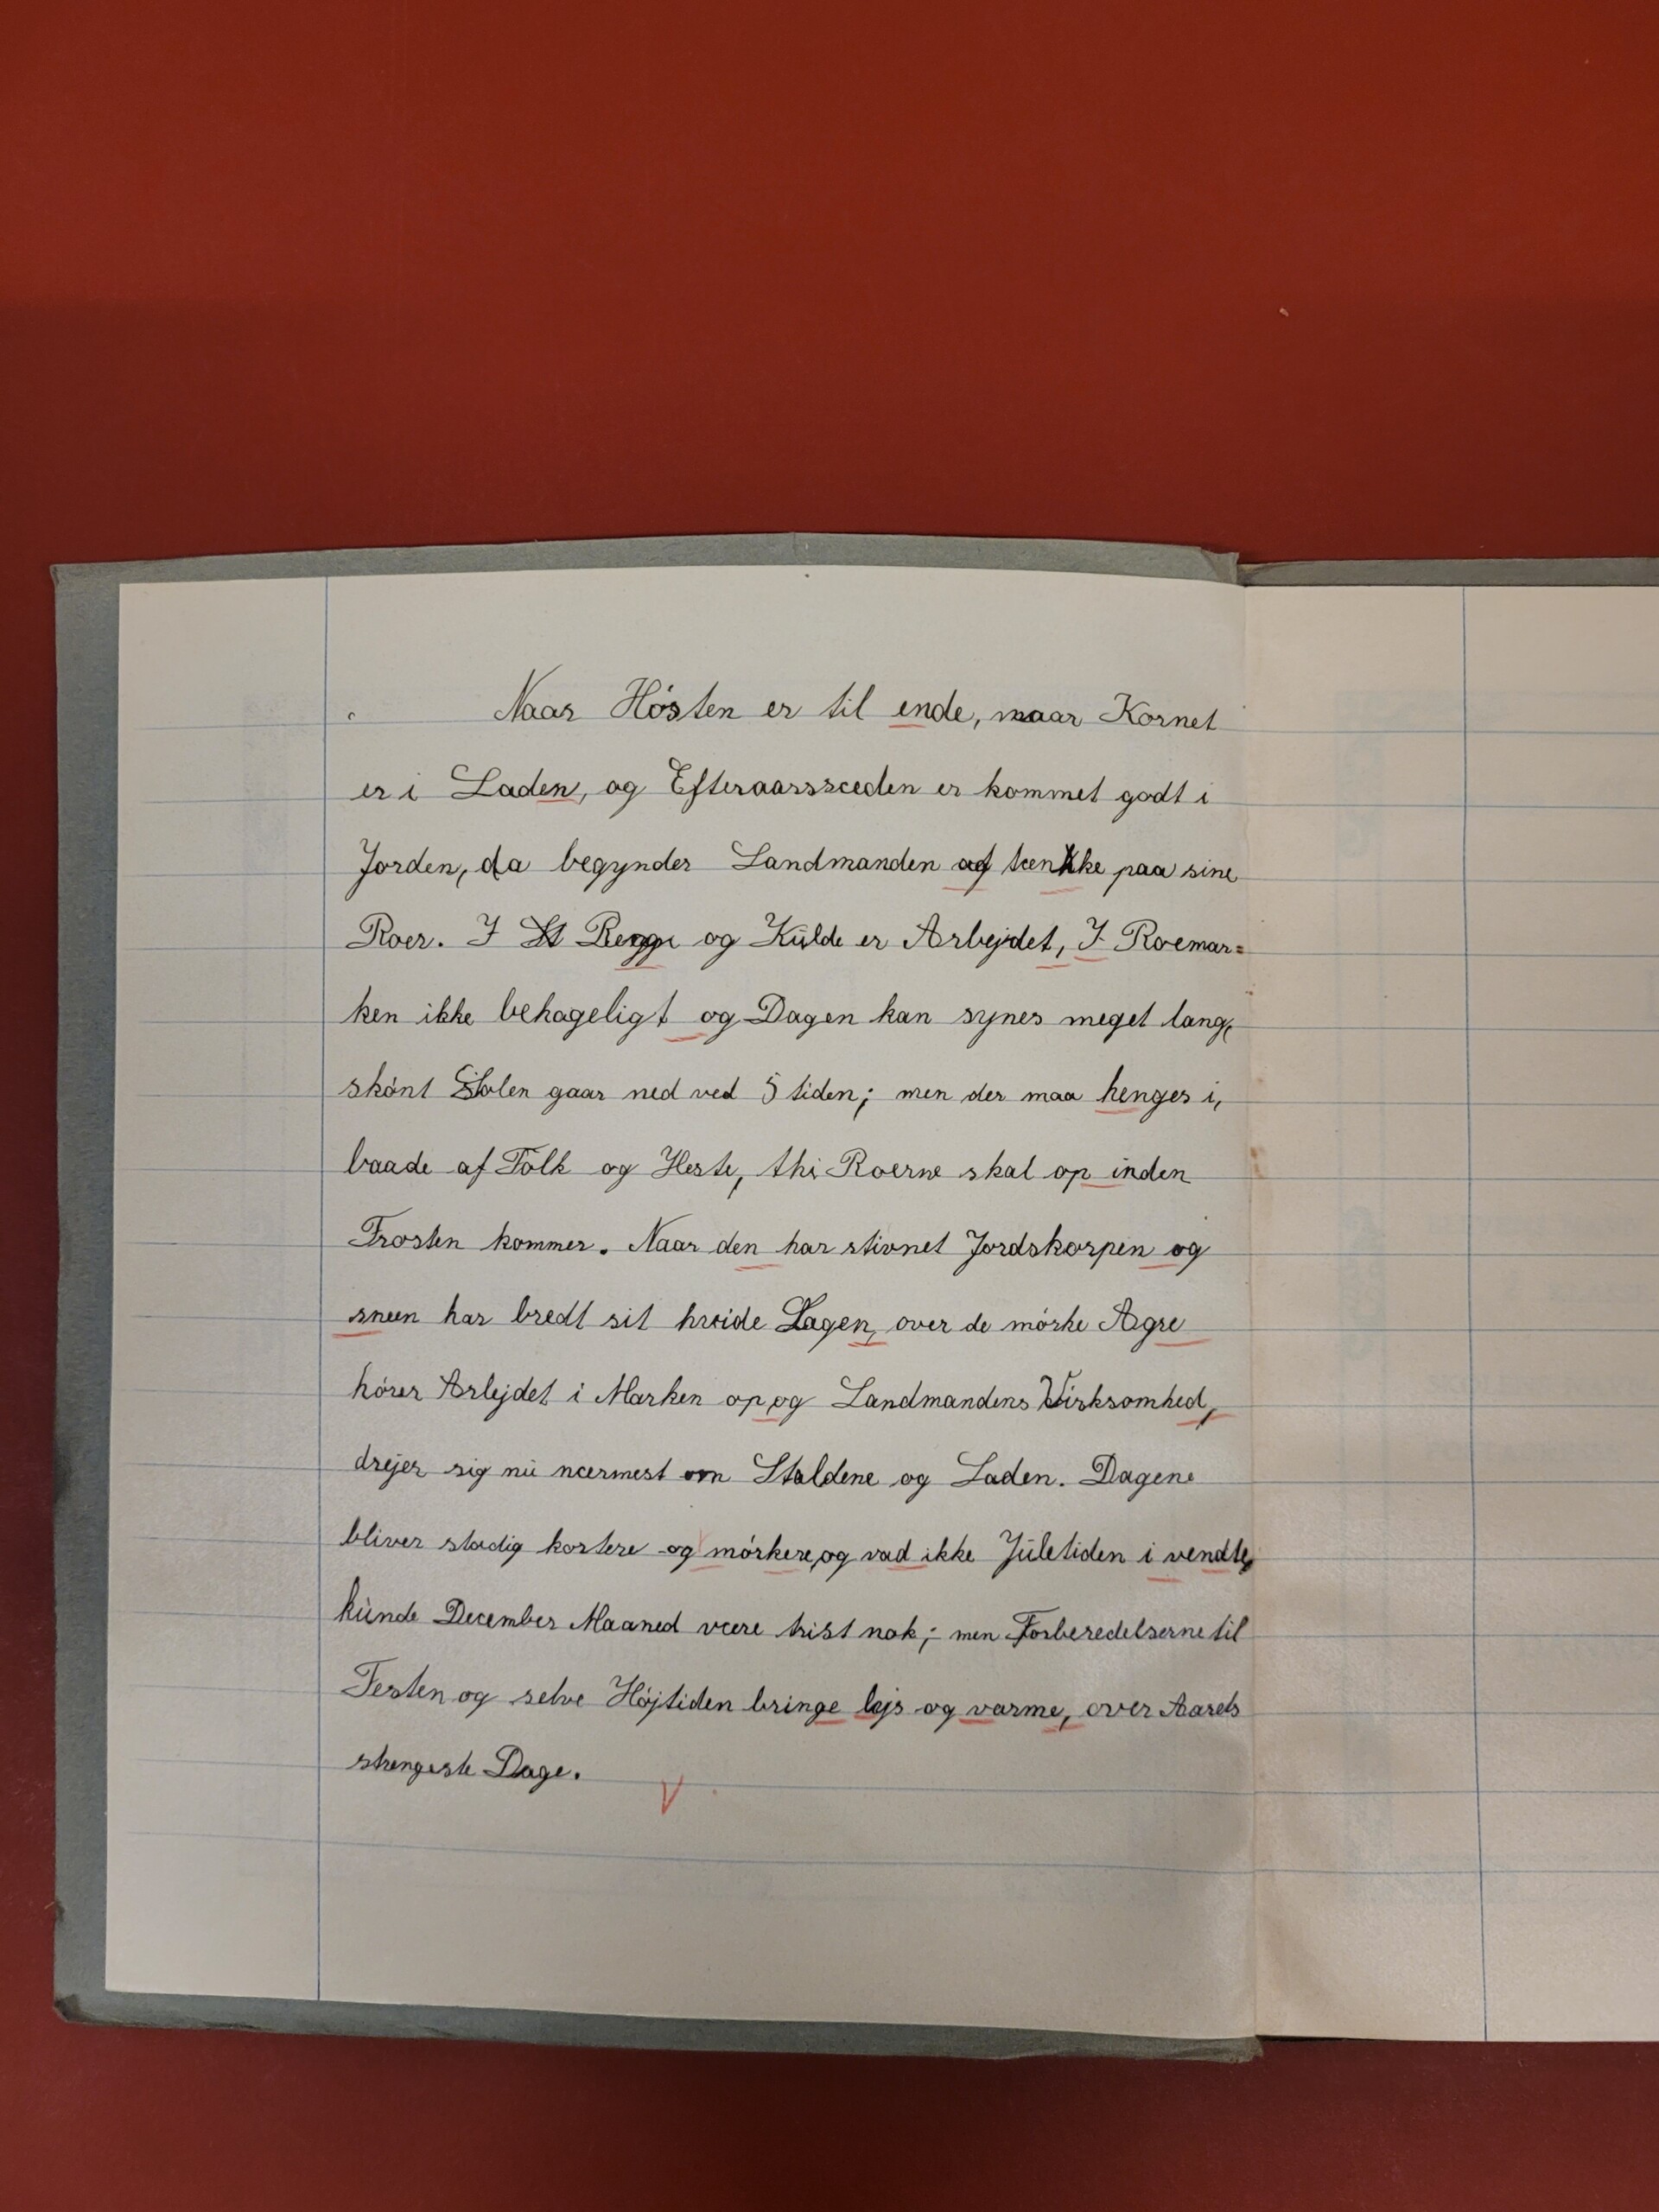 Naar Hósten er til ende, naar Kornet
er i Laden, og Efteraarssæden er kommet godt i
Jorden, da begynder Landmanden at tænkke paa sine
Roer. I Regge og Kulde er Arbejdet, I Roemar=
ken ikke behageligt og Dagen kan synes meget lang,
skónt Solen gaar ned ved 5 tiden; men der maa henges i,
baade af Folk og Heste, thi Roerne skal op inden
Frosten kommer. Naar den har stivnet Jordskorpen og
sneen har bredt sit hvide Lagen, over de mórke Agre
hórer Arbejdet i Marken op og Landmandens Virksomhed,
drejer sig nu nærmest om Staldene og Laden. Dagene
bliver stadig kortere og mórkere, og vad ikke Juletiden i vendte,
kunde December Maaned være trist nok; men Forberedelserne til
Festen og selve Hójtiden bringe lejs og varme, over Aarets
strengeste Dage.